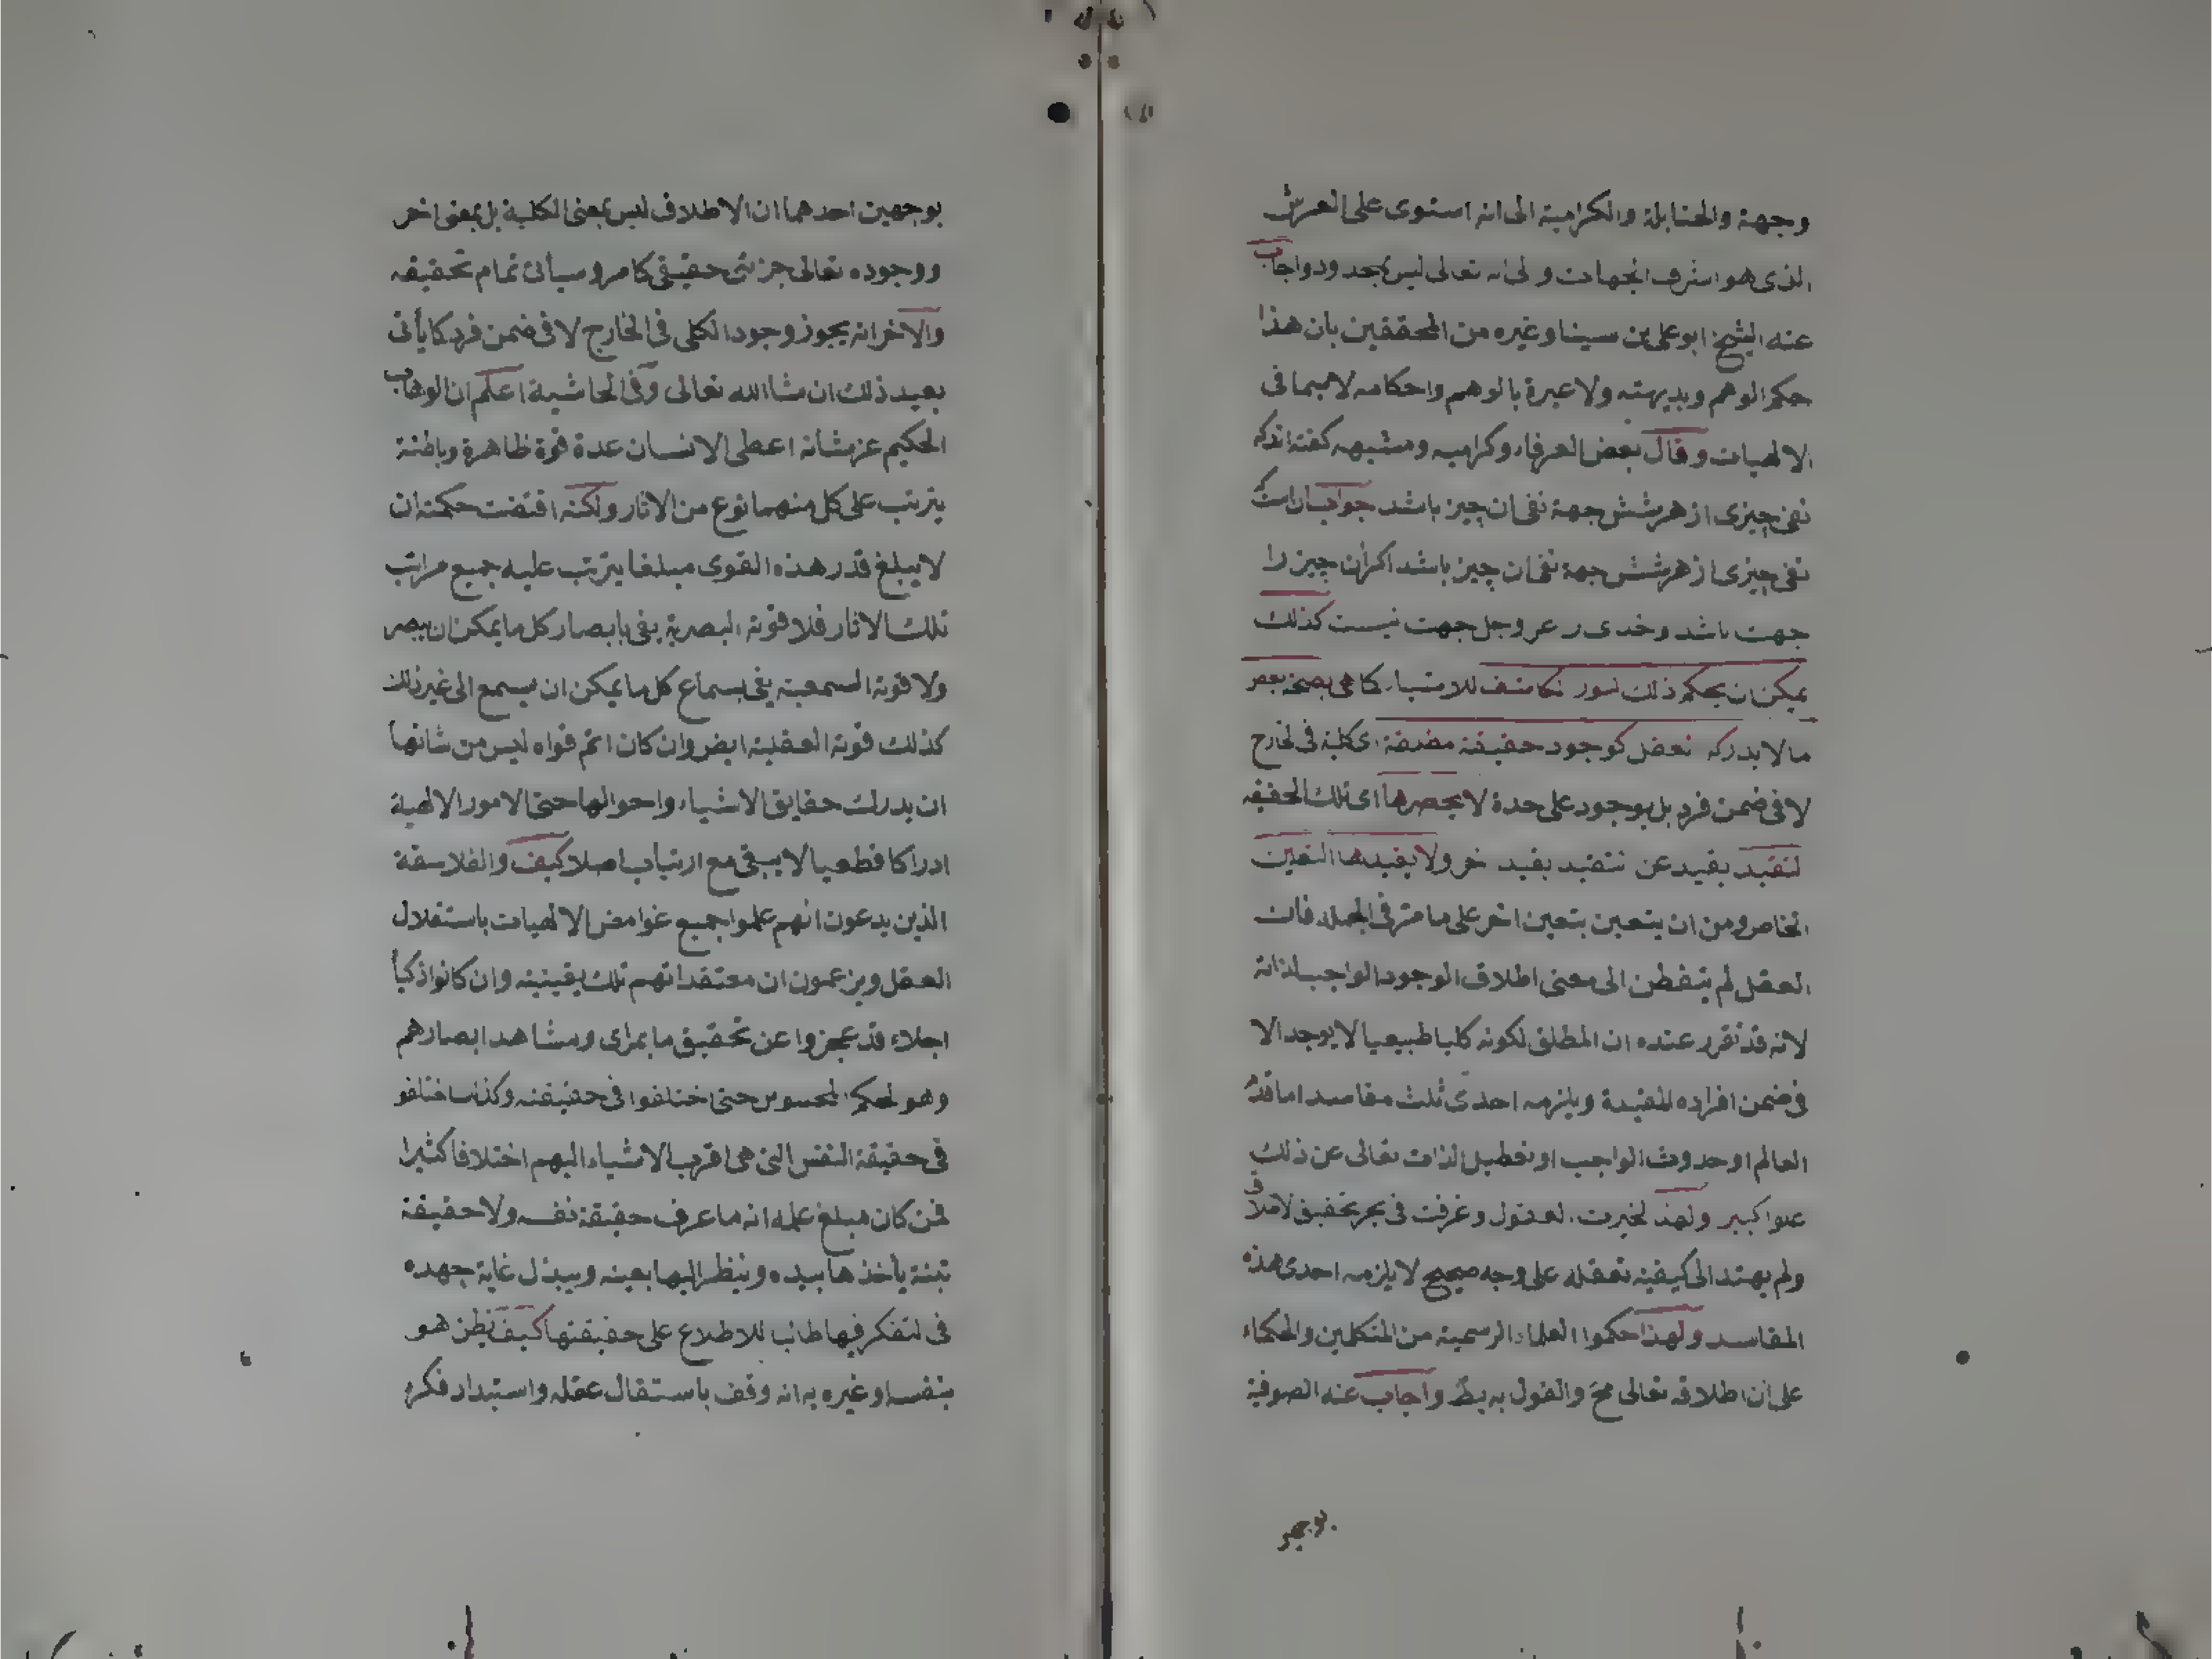 وجهة والحنابلة والكرامية الى انه استوى على العرش
الذى هو اشرف الجهات ولى انه تعالى ليس بحد ودواجاب
عنه الشيخ ابو على بن سينا وغيره من المحققين بان هذا
حكم الوهم وبديهته ولا عبرة بالوهم واحكامه لاسيما فى
الالهيات وقال بعض العرفاء وكراميه ومشبهه كفته اندكه
نفى چيزى از هر شش جهة نفى ان چيز باشد جواب انست كه
نفى چيزى از هر شش جهة نفى ان چيز باشد اكر ان چيز را
جهت باشد وخداى را عز وجل جهت نيست كذلك
يمكن ان يحكم ذلك النور الكاشف للاشياء كما هى بصحة بعض
ما لا يدركه العقل كوجود حقيقة مطلقة اى كلية فى الخارج
لا فى ضمن فرد بل بوجود على حدة لا يحصرها اى تلك الحقيقه
التقيد بقيد عن التقيد بقيد اخر ولا يقيدها التعين
الخاص ومن ان يتعين بتعين اخر على ما مر فى الجملة فان
العقل لم يتفطن الى معنى اطلاق الوجود الواجب لذاته
لانه قد تقرر عنده ان المطلق لكونه كليا طبيعيا لا يوجد الا
فى ضمن افراده المقيدة ويلزمه احدى ثلث مفاسد اما قدم
العالم او حدوث الواجب او تعطيل الذات تعالى عن ذلك
علوا كبيرا ولهذا تحيرت العقول وغرقت فى بحر تحقيق الاطلاق
ولم يهتد الى كيفية تعقله على وجه صحيح لا يلزمه احدى هذه
المفاسد ولهذا حكموا العلماء الرسمية من المتكلمين والحكماء
على ان اطلاقه تعالى مح والقول به بط واجاب عنه الصوفية
بوجهين
بوجهين احدهما ان الاطلاق ليس بمعنى الكلية بل بمعنى اخر
ووجوده تعالى جزئى حقيقى كما مر وسيأتى تمام تحقيقه
والاخر انه يجوز وجود الكلى فى الخارج لا فى ضمن فرد كما يأتى
بعيد ذلك ان شاالله تعالى وفى الحاشية اعلم ان الوهاب
الحكيم عز شأنه اعطى الانسان عدة قوة ظاهرة وباطنة
يترتب على كل منهما نوع من الاثار ولكنه اقتضت حكمته ان
لا يبلغ قدر هذه القوى مبلغا يترتب عليه جميع مراتب
تلك الاثار فلا قوته البصرية يفى بابصار كل ما يمكن ان يبصر
ولا قوته السمعية يفى بسماع كل ما يمكن ان يسمع الى غير ذلك
كذلك قوته العقلية ايض وان كان اتم قواه ليس من شانها
ان يدرك حقايق الاشياء واحوالها حتى الامور الالهية
ادراكا قطعيا لا يبقى مع ارتياب اصلا كيف والفلاسفة
الذين يدعون انهم علموا جميع غوامض الالهيات باستقلال
العقل ويزعمون ان معتقداتهم تلك يقينية وان كانوا اذكيا
اجلاء قد عجزوا عن تحقيق ما بمرأى ومشاهد ابصارهم
وهو الحكم المحسوس حتى اختلفوا فى حقيقته وكذا اختلفو
فى حقيقة النفس التى هى اقرب الاشياء اليهم اختلافا كثيرا
فمن كان مبلغ علمه انه ما عرف حقيقة نفسه ولا حقيقة
تبنة يأخذها بيده وينظر اليها بعينه ويبذل غاية جهده
فى التفكر فيها طالب للاطلاع على حقيقتها كيف يظن هو
بنفسه او غيره به انه وقف باستقلال عقله واستبداد فكره